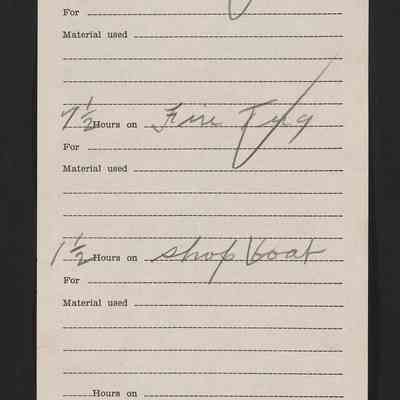 For
Material used
7 1/2 Hours on Fire Tug
For
Material used
1 1/2 Hours on Shop boat
For
Material used
Hours on